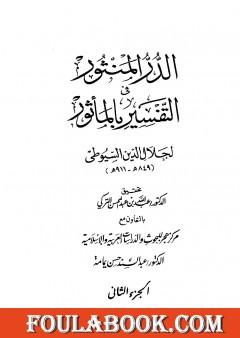 الدر المنثور
في
التفسير بالمأثور
لجلال الدين السيوطي
(٨٤٩هـ - ٩١١هـ)
تحقيق
الدكتور عبدالله بن عبدالمحسن التركي
بالتعاون مع
مركز هجر للبحوث والدراسات العربية والإسلامية
الدكتور عبدالسند حسن يمامة
الجزء الثاني
FOULABOOK.COM